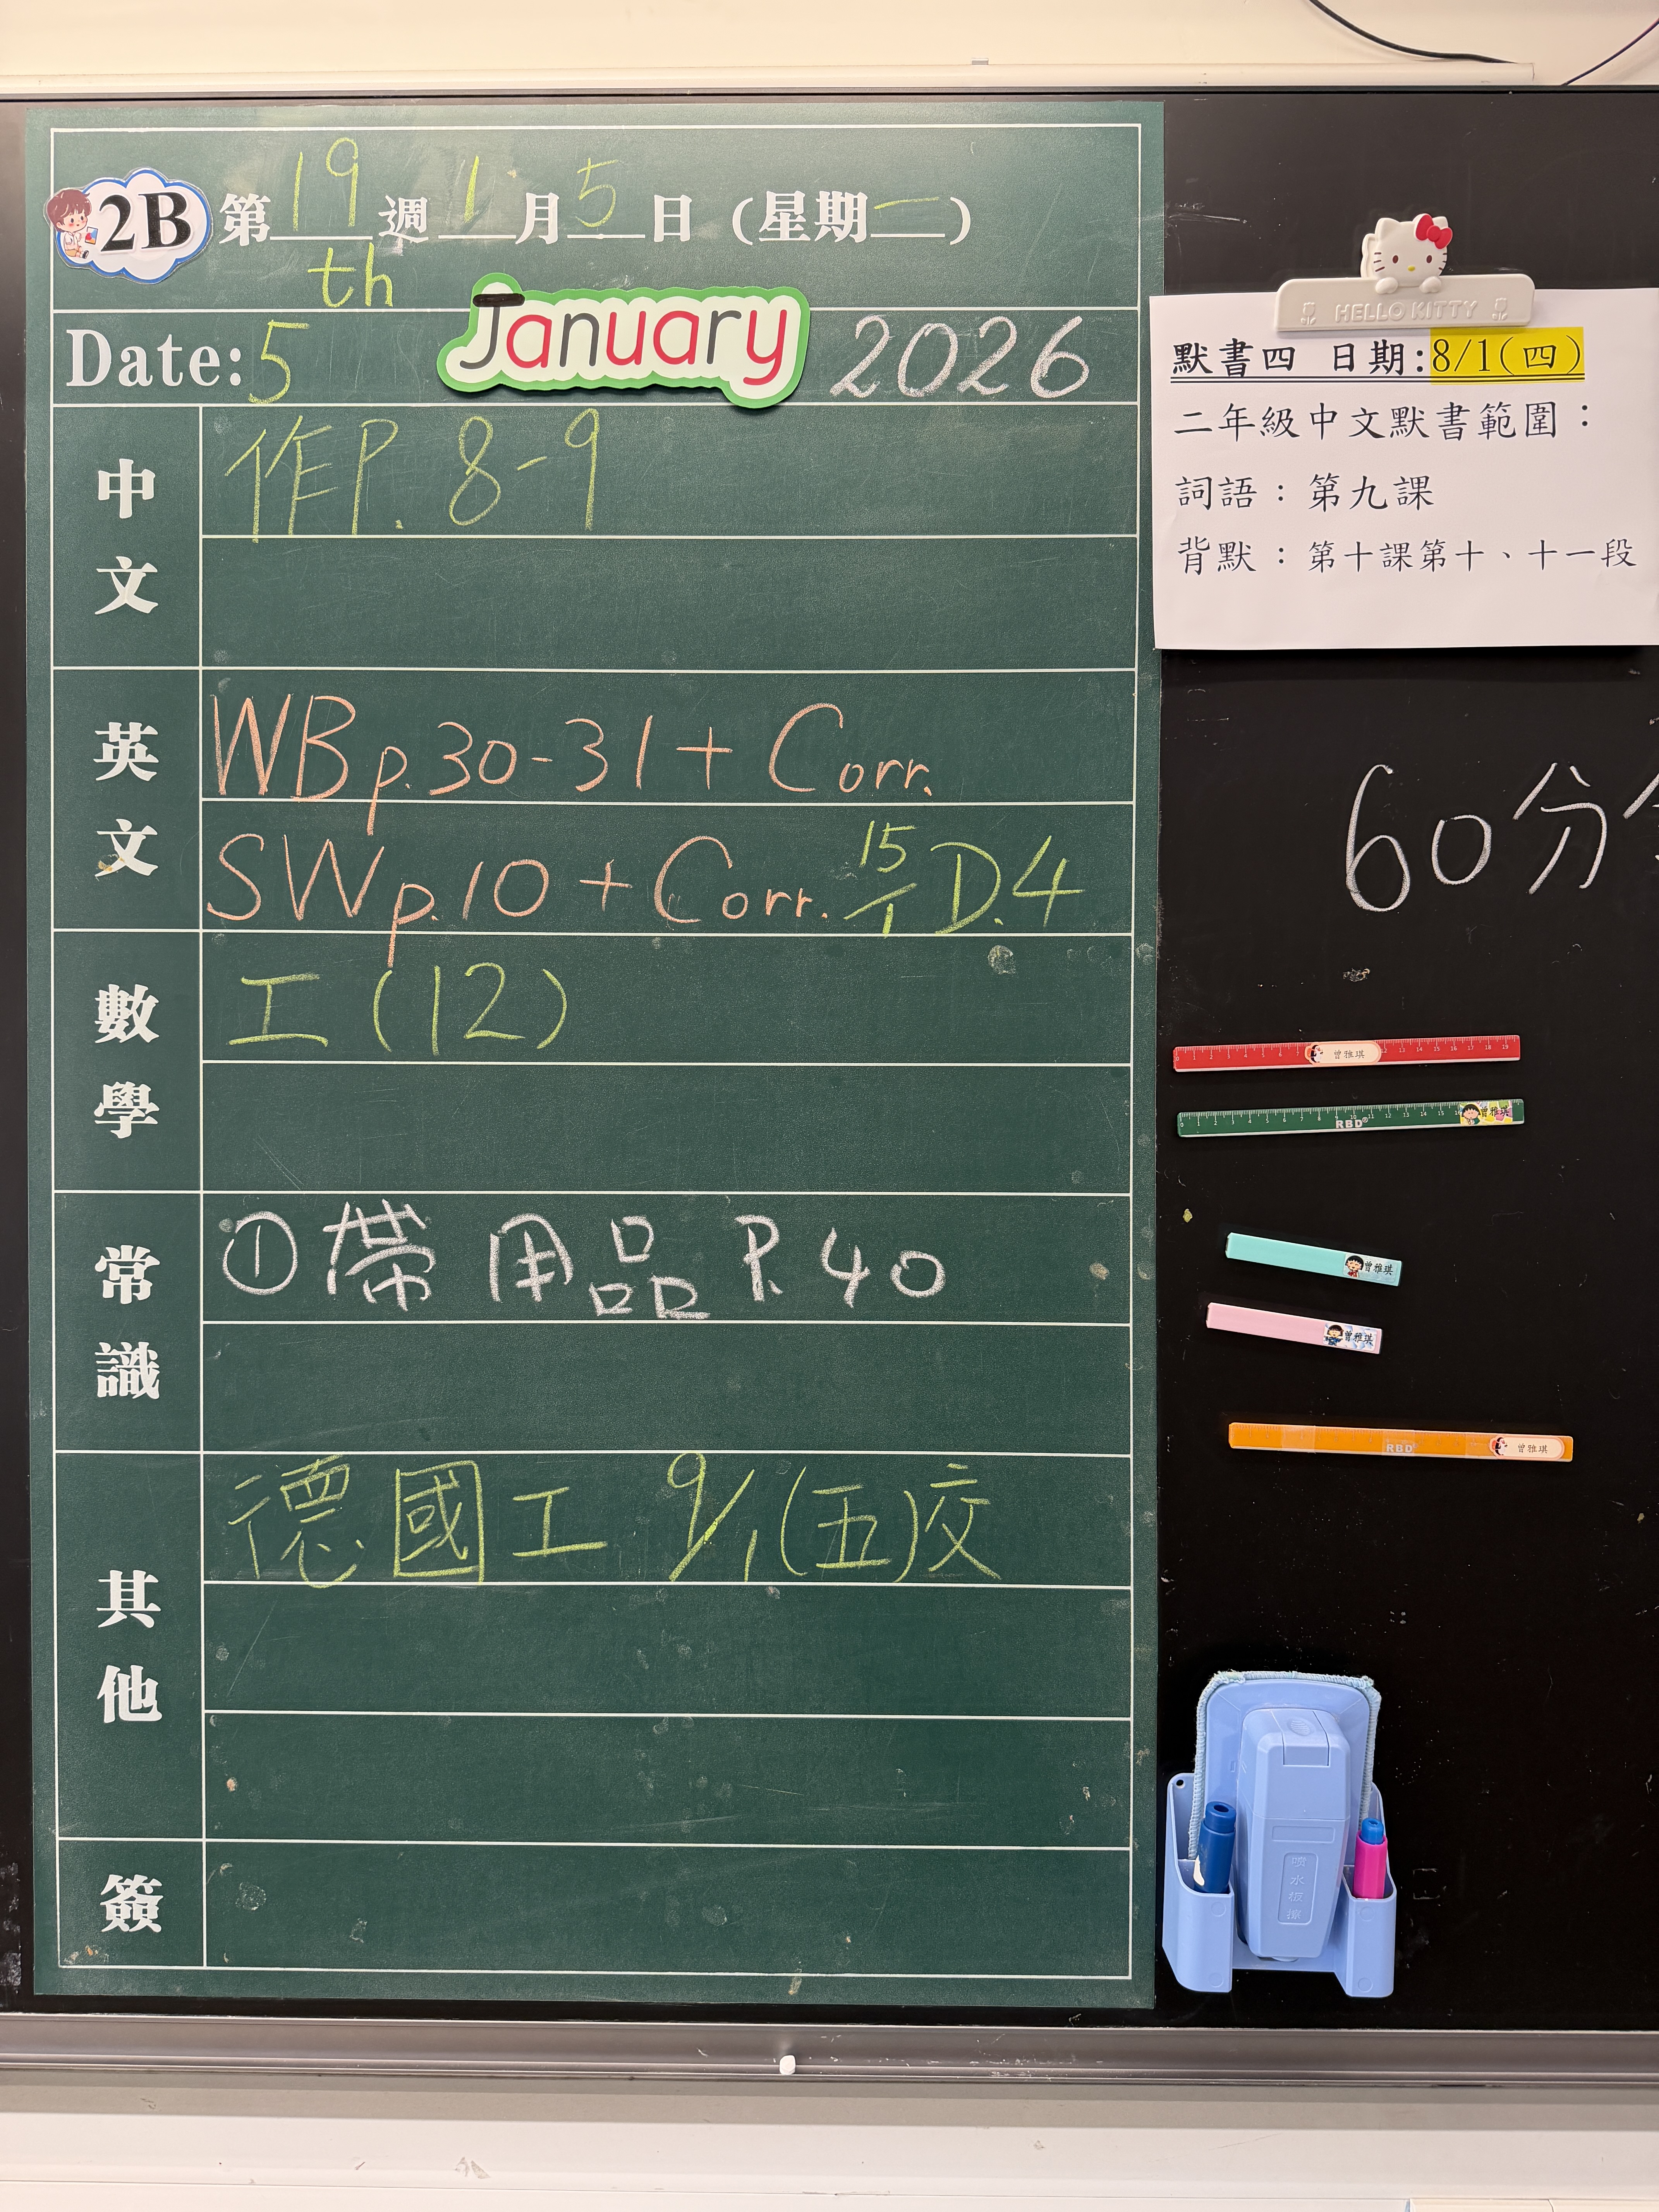 2B 第19週 1月5日 (星期一)
Date: 5th January 2026
中文
作P. 8-9
英文
WB p.30-31 + Corr.
SW p.10 + Corr. 15/1 D.4
數學
工(12)
常識
① 帶用品 P.40
其他
德國工 9/1(五)交
簽
HELLO KITTY
默書四 日期:8/1(四)
二年級中文默書範圍：
詞語：第九課
背默：第十課第十、十一段
60分
曾雅琪
RBD
曾雅琪
曾雅琪
曾雅琪
RBD
曾雅琪
噴水板擦